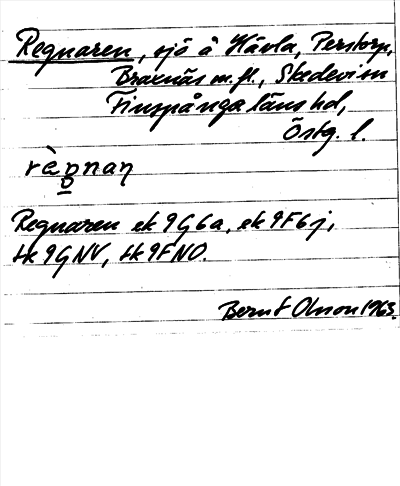 Regnaren, sjö å Hävla, Perstorp,
Braxnäs m.fl., Skedevi sn
Finspånga läns hd,
Östg. l.
Regnaren ek 9G6a, ek 9F6j,
tk 9GNV, tk 9FNO.
Bernt Olsson 1963.